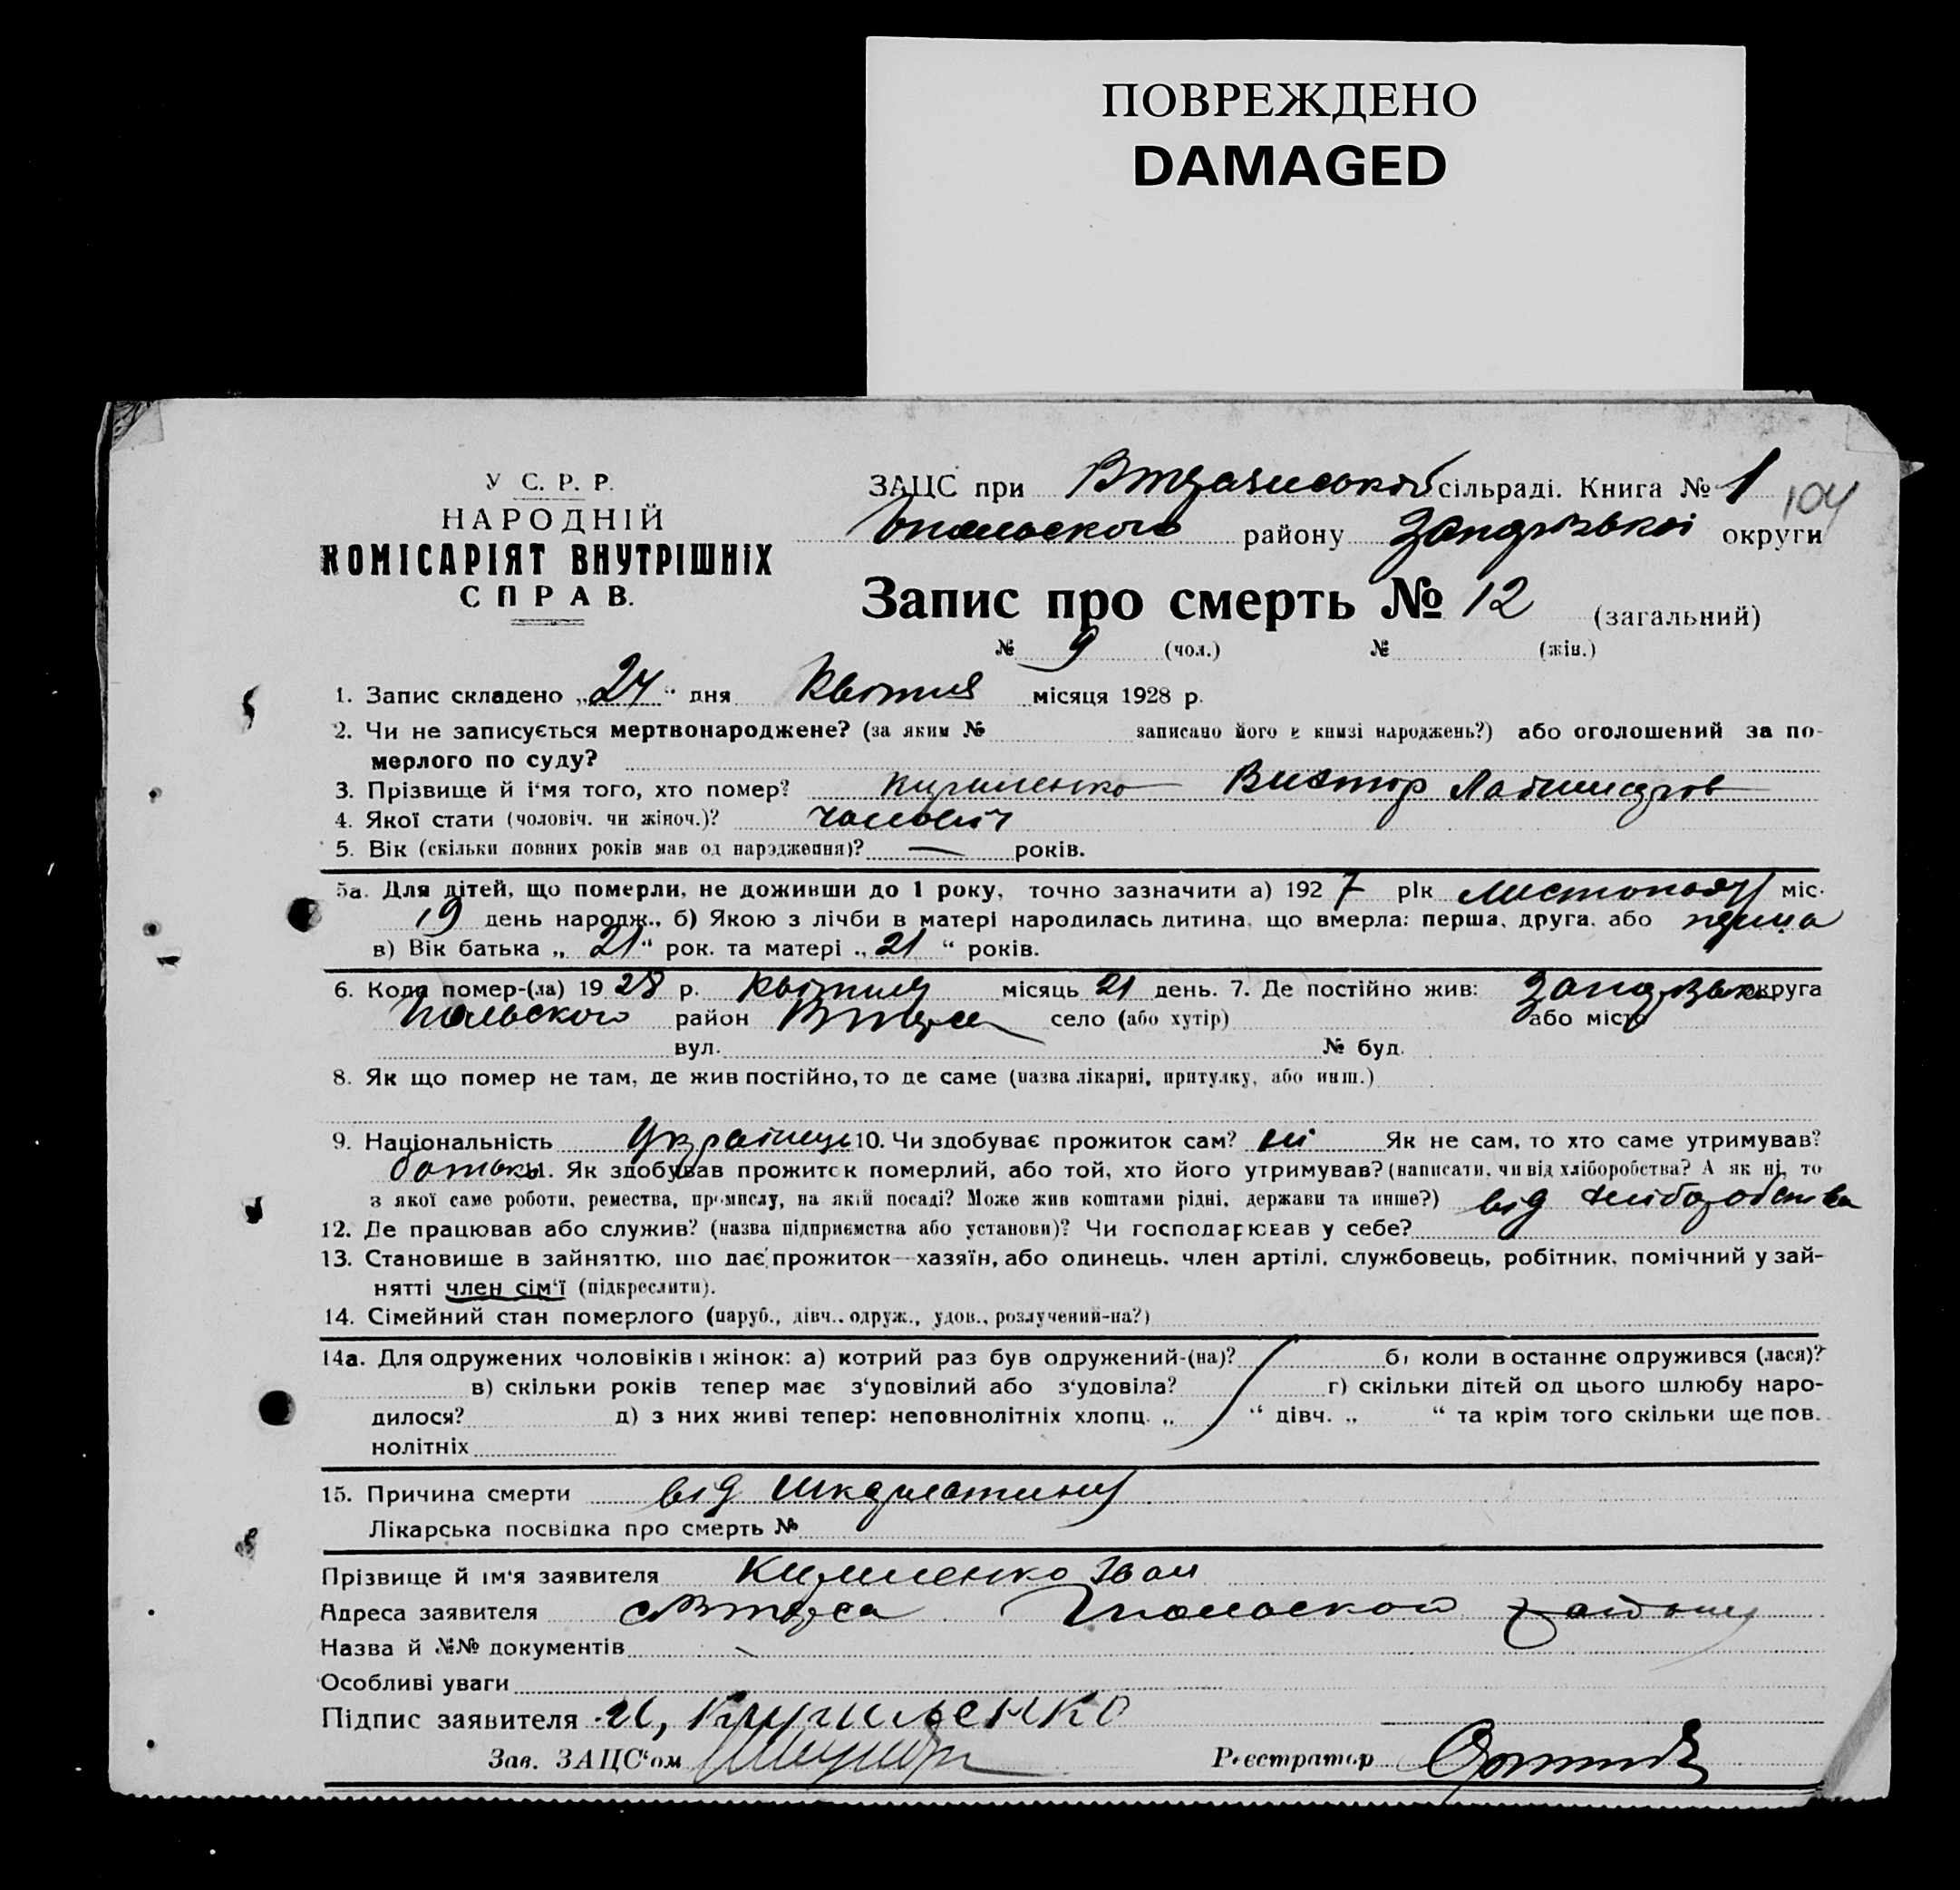 ПОВРЕЖДЕНО
DAMAGED
У С. Р. Р.
НАРОДНІЙ
КОМІСАРІЯТ ВНУТРІШНІХ
СПРАВ.
ЗАЦС при сільраді. Книга № 1
104
району округи
Запис про смерть № 12 (загальний)
№ 9 (чол.) № (жін.)
1. Запис складено „24“ дня Квітня місяця 1928 р.
2. Чи не записується мертвонароджене? (за яким № записано його в книзі народжень?) або оголошений за по-
мерлого по суду?
3. Прізвище й і'мя того, хто помер? Кириленко Виктор
4. Якої стати (чоловіч. чи жіноч.)? чоловіч
5. Вік (скільки повних років мав од народження)? — років.
5а. Для дітей, що померли, не доживши до 1 року, точно зазначити а) 1927 рік Листопаду міс.
19 день народж., б) Якою з лічби в матері народилась дитина, що вмерла: перша, друга, або перша
в) Вік батька „21“ рок. та матері „21“ років.
6. Коли помер-(ла) 1928 р. Квітня місяць 21 день. 7. Де постійно жив: округа
район село (або хутір) або місто
вул. № буд.
8. Як що помер не там, де жив постійно, то де саме (назва лікарні, притулку, або инш.)
9. Національність Українець 10. Чи здобуває прожиток сам? ні Як не сам, то хто саме утримував?
батьки 11. Як здобував прожиток померлий, або той, хто його утримував? (написати, чи від хліборобства? А як ні, то
з якої саме роботи, ремества, промислу, на якій посаді? Може жив коштами рідні, держави та инше?) від хліборобства
12. Де працював або служив? (назва підприємства або установи)? Чи господарював у себе?
13. Становище в зайняттю, що дає прожиток—хазяїн, або одинець, член артілі, службовець, робітник, помічний у зай-
нятті член сім'ї (підкреслити).
14. Сімейний стан померлого (паруб., дівч., одруж., удов., розлучений-на?)
14а. Для одружених чоловіків і жінок: а) котрий раз був одружений-(на)? б) коли востаннє одружився (лася)?
в) скільки років тепер має з'удовілий або з'удовіла? г) скільки дітей од цього шлюбу наро-
дилося? д) з них живі тепер: неповнолітніх хлопц. „ “ дівч. „ “ та крім того скільки ще пов.
нолітніх
15. Причина смерти від Шкарлатини
Лікарська посвідка про смерть №
Прізвище й ім'я заявителя Кириленко Іван
Адреса заявителя району
Назва й №№ документів
Особливі уваги
Підпис заявителя И, Кириленко
Зав. ЗАЦС'ом Реєстратор